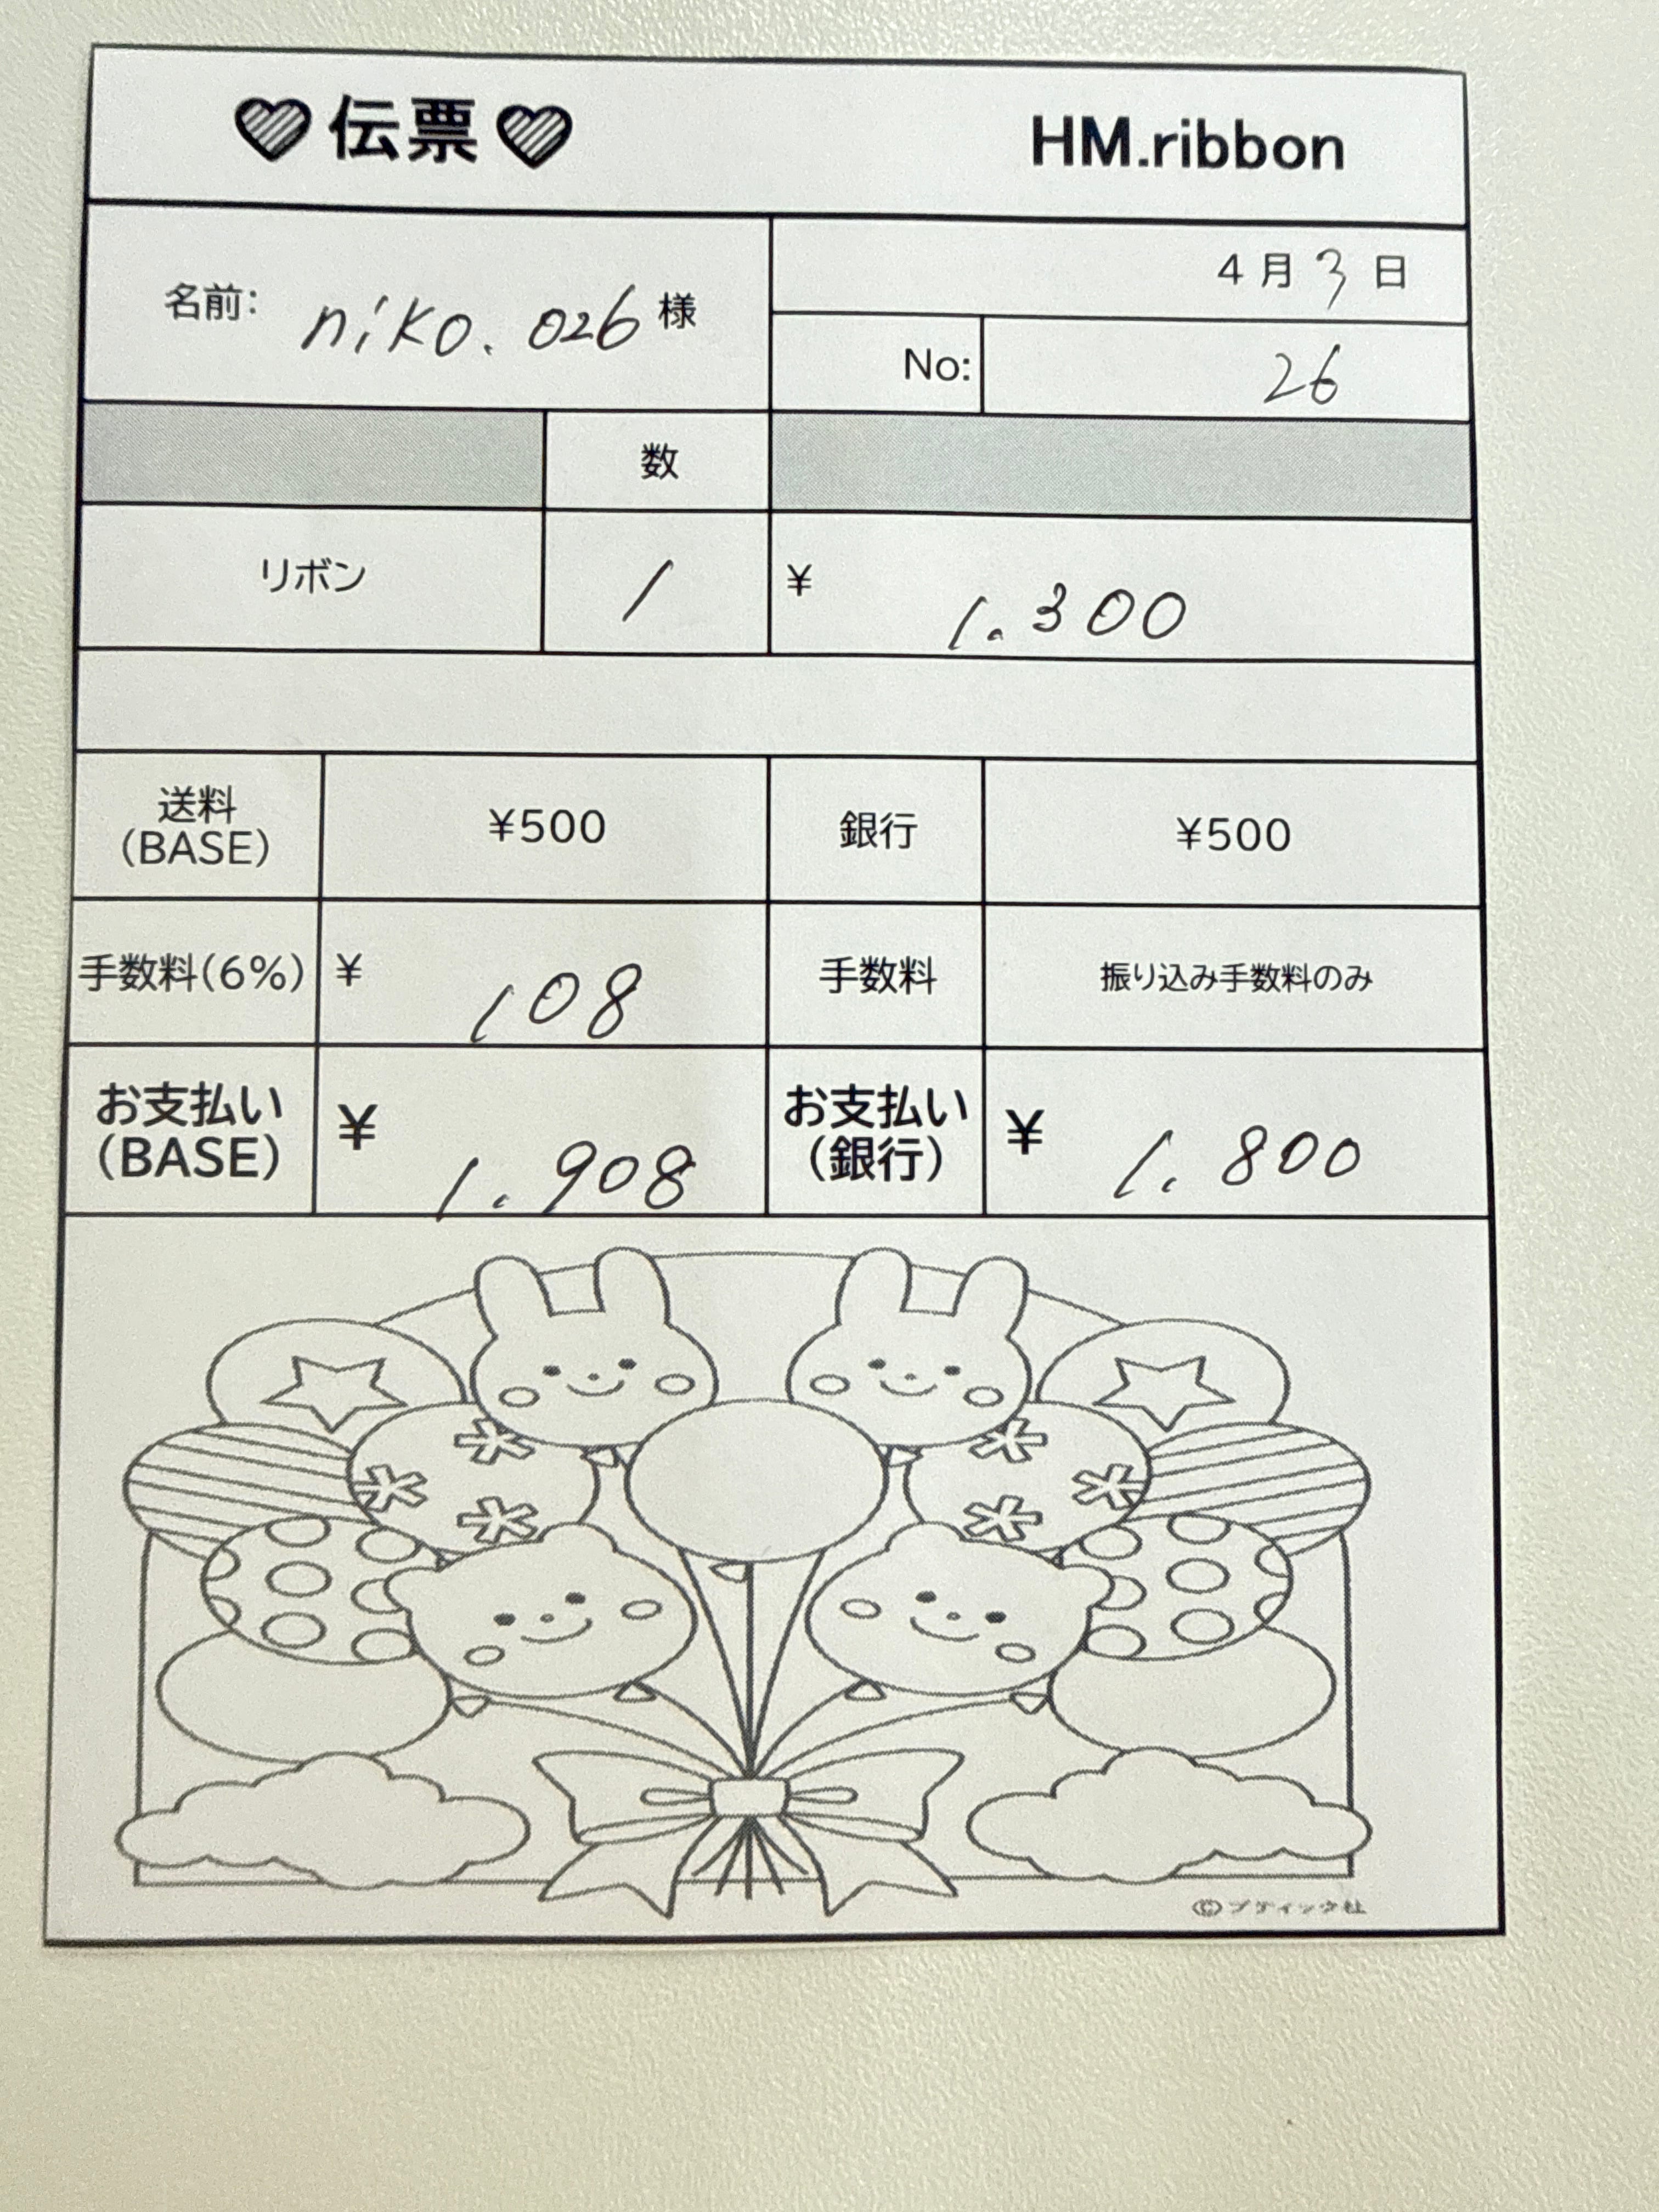 伝票 HM.ribbon
名前: niko.026 様
4月3日
No: 26
数
リボン 1 ¥ 1.300
送料 (BASE) ¥500 銀行 ¥500
手数料(6%) ¥ 108 手数料 振り込み手数料のみ
お支払い (BASE) ¥ 1.908 お支払い (銀行) ¥ 1.800
©ブティック社